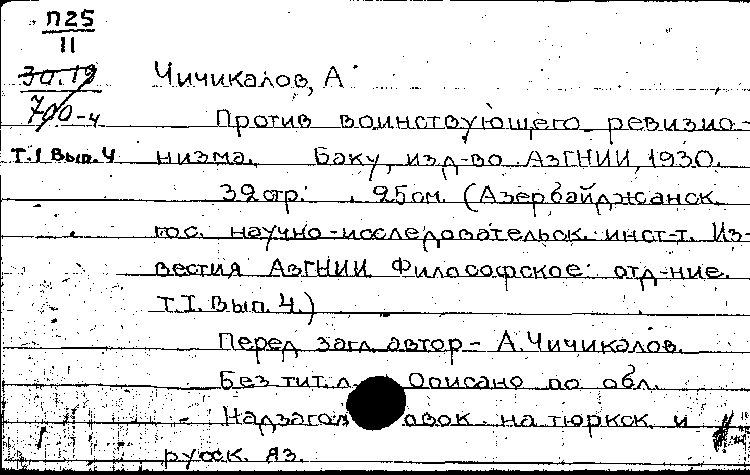 П25
II
30.19
700-4
Чичикалов, А
Против воинствующего ревизио-
Т.I Вып.4 низма. Баку, изд-во АзГНИИ, 1930.
32стр. 25см. (Азербайджанск.
гос. научно-исследовательск. инст-т. Из-
вестия АзГНИИ Философское отд-ние.
Т.I. Вып. 4.)
Перед загл. автор - А. Чичикалов.
Без тит. л. Описано по обл.
Надзагол овок на тюркск. и
русск. яз.